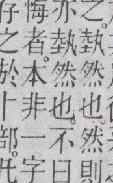 之執然也然則
亦執然也。不曰
悔者。本非一字
存之於十部。